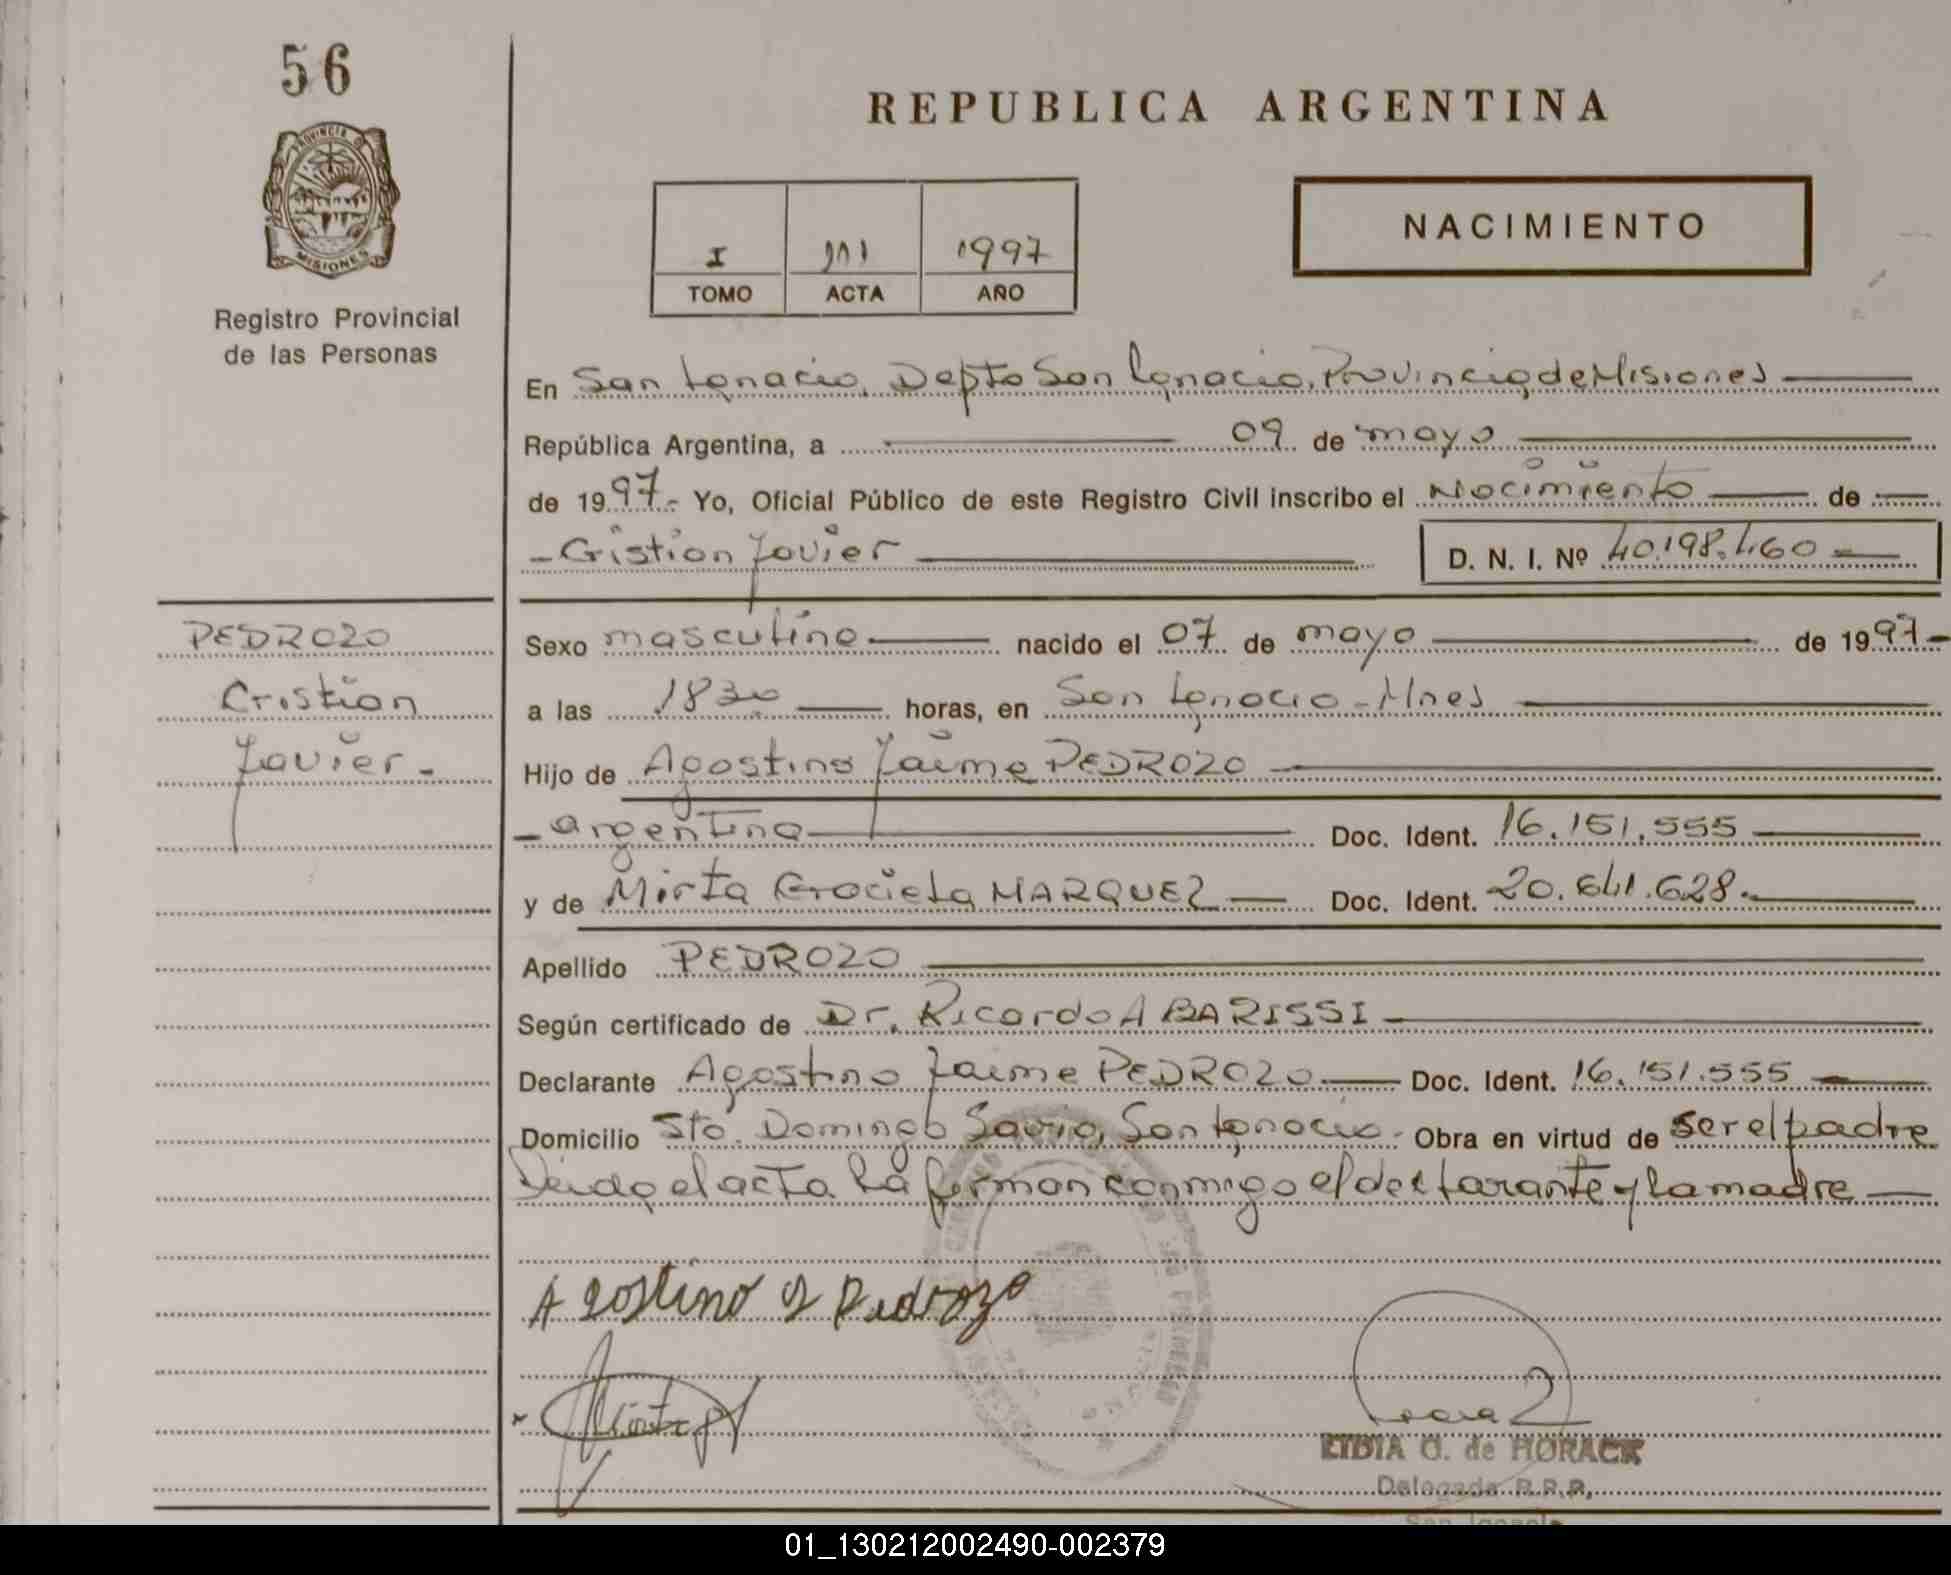 56
PROVINCIA DE
MISIONES
Registro Provincial
de las Personas
REPUBLICA ARGENTINA
I 111 1997
TOMO ACTA AÑO
NACIMIENTO
En San Ignacio, Depto San Ignacio, Provincia de Misiones
República Argentina, a 09 de mayo
de 1997.- Yo, Oficial Público de este Registro Civil inscribo el Nacimiento de
- Cristian Javier
D. N. I. Nº 40.198.460
PEDROZO
Cristian
Javier-
Sexo masculino nacido el 07 de mayo de 1997-
a las 1830 horas, en San Ignacio - Mnes
Hijo de Agostino Jaime PEDROZO
- argentino Doc. Ident. 16.151.555
y de Mirta Graciela MARQUEZ Doc. Ident. 20.641.628.
Apellido PEDROZO
Según certificado de Dr. Ricardo A BARISSI
Declarante Agostino Jaime PEDROZO Doc. Ident. 16.151.555
Domicilio Sto. Domingo Savio, San Ignacio. Obra en virtud de ser el padre
Leida el acta la firman conmigo el declarante y la madre
Agostino J Pedrozo
LIDIA G. de HORACK
Delegada R.P.P.
San Ignacio
01_130212002490-002379